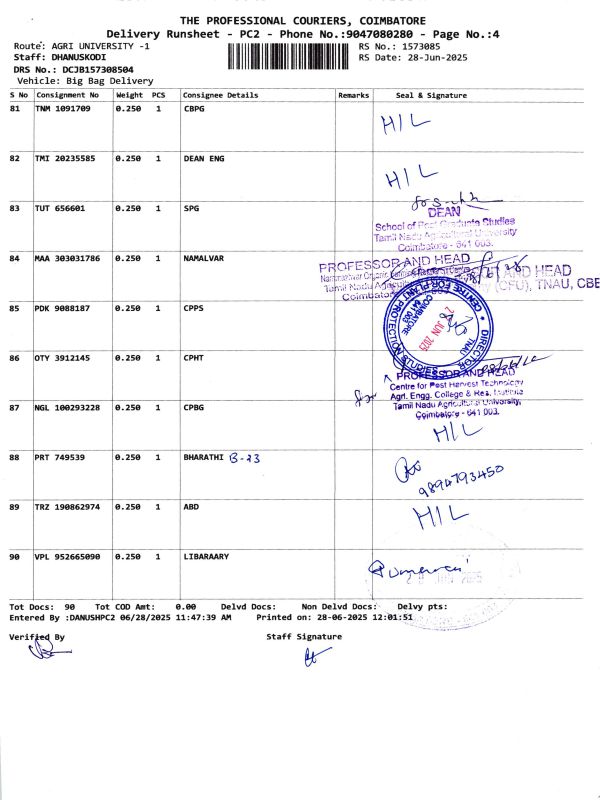 THE PROFESSIONAL COURIERS, COIMBATORE
Delivery Runsheet - PC2 - Phone No.:9047080280 - Page No.:4
Route: AGRI UNIVERSITY -1 RS No.: 1573085
Staff: DHANUSKODI RS Date: 28-Jun-2025
DRS No.: DCJB157308504
Vehicle: Big Bag Delivery
S No Consignment No Weight PCS Consignee Details Remarks Seal & Signature
81 TNM 1091709 0.250 1 CBPG H/L
82 TMI 20235585 0.250 1 DEAN ENG H/L
83 TUT 656601 0.250 1 SPG
DEAN
School of Post Graduate Studies
Tamil Nadu Agricultural University
Coimbatore - 641 003.
84 MAA 303031786 0.250 1 NAMALVAR
PROFESSOR AND HEAD
Tamil Nadu
Coimbatore
AND HEAD
(CFU), TNAU, CBE
85 PDK 9088187 0.250 1 CPPS
DIRECTOR
CENTRE FOR PLANT PROTECTION STUDIES
TNAU
COIMBATORE
641 003
JUN 2025
86 OTY 3912145 0.250 1 CPHT
PROFESSOR AND HEAD
Centre for Post Harvest Technology
Agri. Engg. College & Res. Institute
Tamil Nadu Agricultural University,
Coimbatore - 641 003.
87 NGL 100293228 0.250 1 CPBG H/L
88 PRT 749539 0.250 1 BHARATHI B-23 9894793450
89 TRZ 190862974 0.250 1 ABD H/L
90 VPL 952665090 0.250 1 LIBARAARY
JUN 2025
Tot Docs: 90 Tot COD Amt: 0.00 Delvd Docs: Non Delvd Docs: Delvy pts:
Entered By :DANUSHPC2 06/28/2025 11:47:39 AM Printed on: 28-06-2025 12:01:51
Verified By Staff Signature